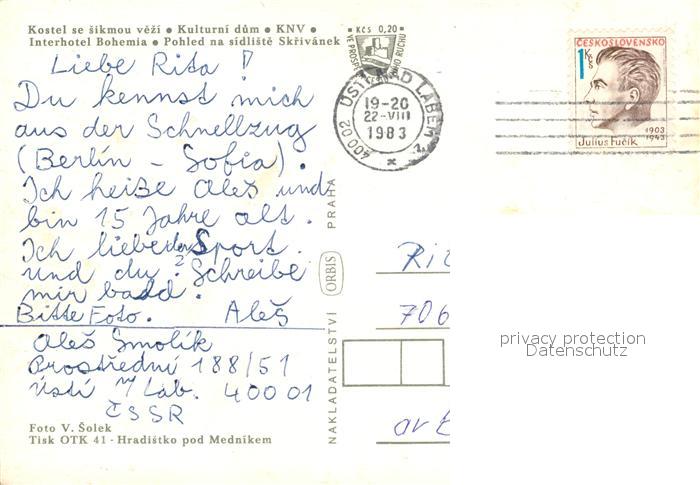 Kostel se šikmou věží • Kulturní dům • KNV •
Interhotel Bohemia • Pohled na sídliště Skřivánek
Liebe Rita !
Du kennst mich
aus der Schnellzug
(Berlín – Sofia).
Ich heiße Aleš und
bin 15 Jahre alt.
Ich liebe den Sport.
und du? Schreibe
mir badd.
Bitte Foto. Aleš
Aleš Smolík
Prostřední 188/51
Ústí n/Lab. 400 01
ČSSR
Foto V. Šolek
Tisk OTK 41 - Hradištko pod Medníkem
NAKLADATELSTVÍ ORBIS PRAHA
Kčs 0,20
VE PROSPĚCH
RUCHU
ÚSTÍ NAD LABEM 1
19-20
22-VIII
1983
400 02
ČESKOSLOVENSKO
1 Kčs
1903
1943
Julius Fučík
706
privacy protection
Datenschutz